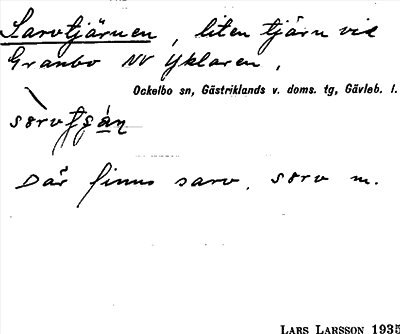 Sarvtjärnen, liten tjärn vid
Granbo NV Yklaren,
Ockelbo sn, Gästriklands v. doms. tg, Gävleb. l.
Där finns sarv, sørv m.
LARS LARSSON 1935